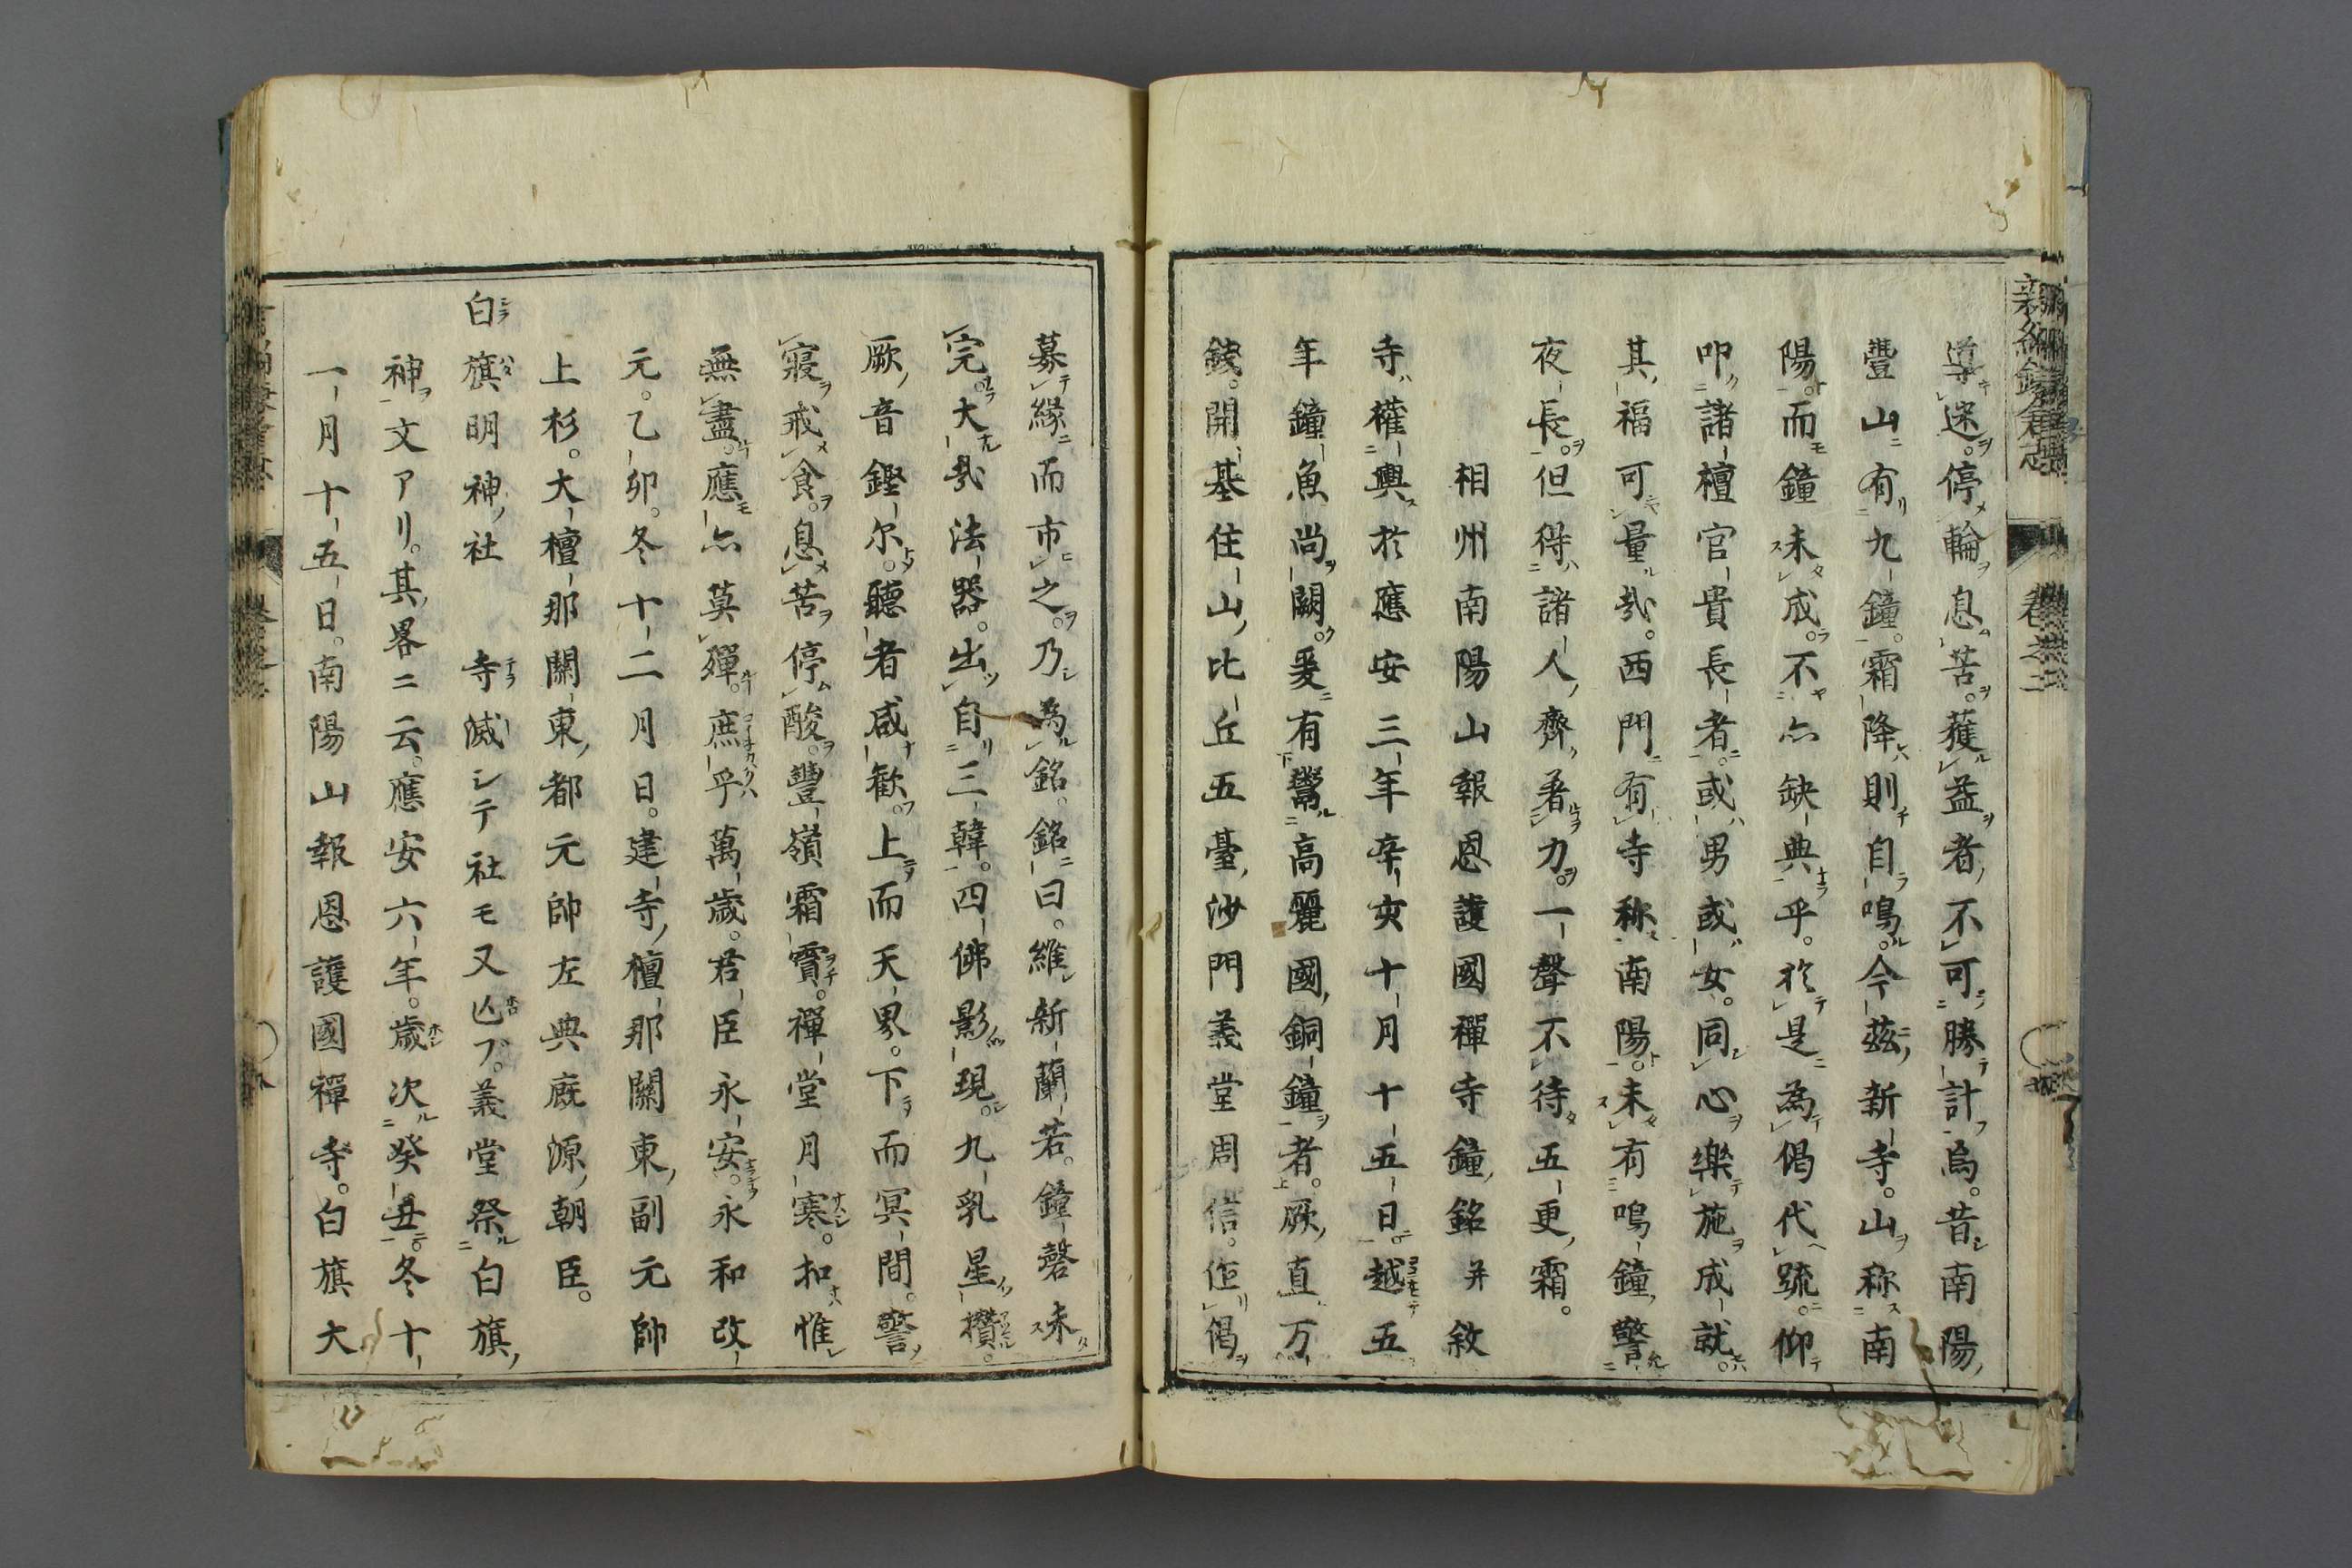 新編鎌倉志 卷之二
導迷停輪息苦。獲益者、不可勝計焉。昔南陽、
豐山有九鐘。霜降則自鳴。今茲新寺。山称南
陽。而鐘未成。不亦缺典乎。於是為偈代疏。仰
叩諸檀官貴長者。或男或女。同心樂施成就。
其福可量哉。西門有寺称南陽。未有鳴鐘警
夜長。但得諸人齊著力。一聲不待五更霜。
相州南陽山報恩護國禪寺鐘銘并敘
寺權輿於應安三年辛亥十月十五日。越五
年鐘魚尚闕。爰有鬻高麗國銅鐘者。厥直万
錢。開基住山比丘五臺沙門義堂周信。作偈
募緣而市之。乃為銘。銘曰。維新蘭若。鐘磬未
完。大哉法器。出自三韓。四佛影現。九乳星攢。
厥音鏗尓。聽者咸歡。上而天界。下而冥間。警
寢戒食。息苦停酸。豐嶺霜賈。禪堂月寒。扣惟
無盡。應亦莫殫。庶乎萬歲。君臣永安。永和改
元。乙卯。冬十二月日。建寺檀那關東副元帥
上杉。大檀那關東都元帥左典厩源朝臣。
白旗明神社 寺滅シテ社モ又亾ブ。義堂祭白旗
神文アリ。其畧ニ云。應安六年。歲次癸丑冬十
一月十五日。南陽山報恩護國禪寺。白旗大